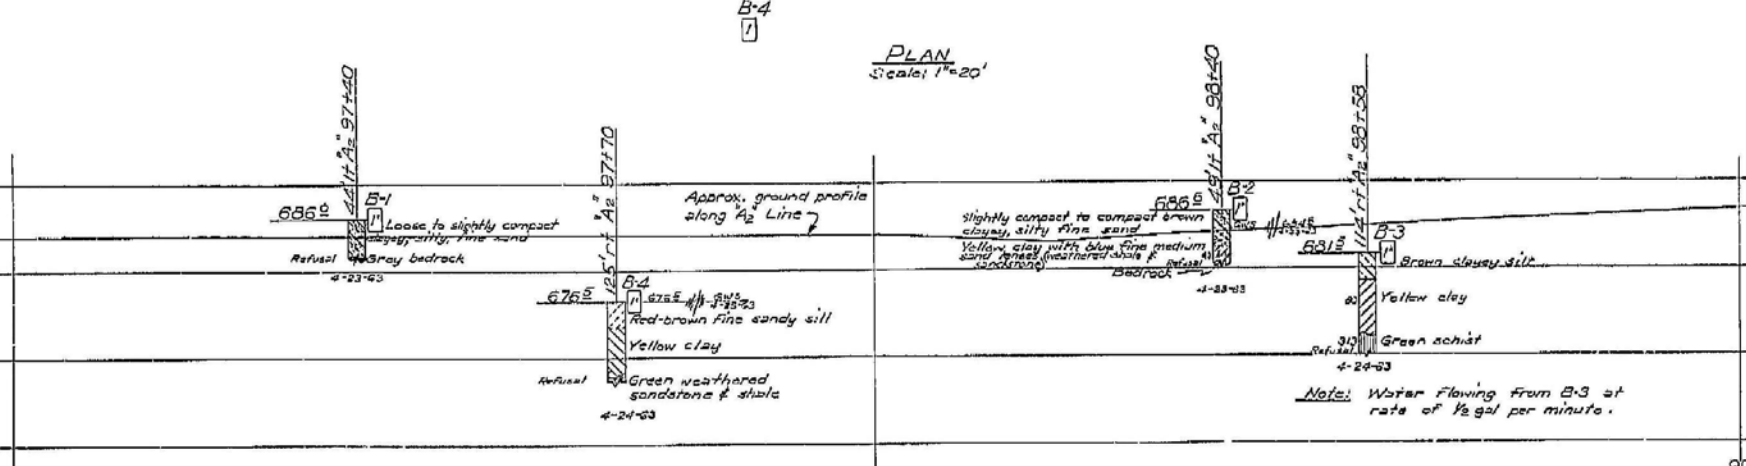 B-4
1
PLAN
Scale: 1"=20'
44' lt "A2" 97+40
B-1
686 0
1"
Loose to slightly compact
clayey, silty, fine sand
Refusal
Gray bedrock
4-23-63
125' rt "A2" 97+70
B-4
676 5
1"
Red-brown fine sandy silt
Yellow clay
Refusal
Green weathered
sandstone & shale
4-24-63
Approx. ground profile
along "A2" Line
49' lt "A2" 98+40
B-2
686 6
1"
Slightly compact to compact brown
clayey, silty fine sand
Yellow clay with blue fine medium
sand lenses (weathered shale &
sandstone)
Refusal
Bedrock
4-23-63
114' rt "A2" 98+58
B-3
681 5
1"
Brown clayey silt
Yellow clay
Green schist
Refusal
4-24-63
Note: Water flowing from B-3 at
rate of 1/2 gal per minute.